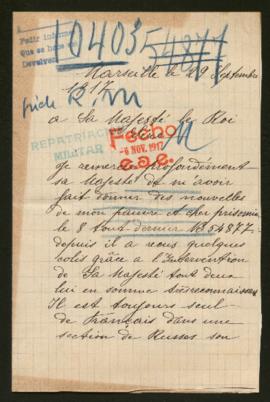 Pedir informe
Que se haga
Devolver
104035
54877
Marseille le 29 Septembre
1917
a Sa Majesté le Roi
REPATRIACION
MILITAR
Fecho
-6 NOV. 1917
e.a.e.
Je remercie profondément
sa Majesté de m'avoir
fait donner des nouvelles
de mon pauvre et cher prisonnier
le 8 aout dernier N° 54877-
depuis il a reçus quelques
colis grâce a l'Intervention
de Sa Majesté tout deux
lui en somme très reconnaissants
Il est toujours seul
de Français dans une
section de Russes son